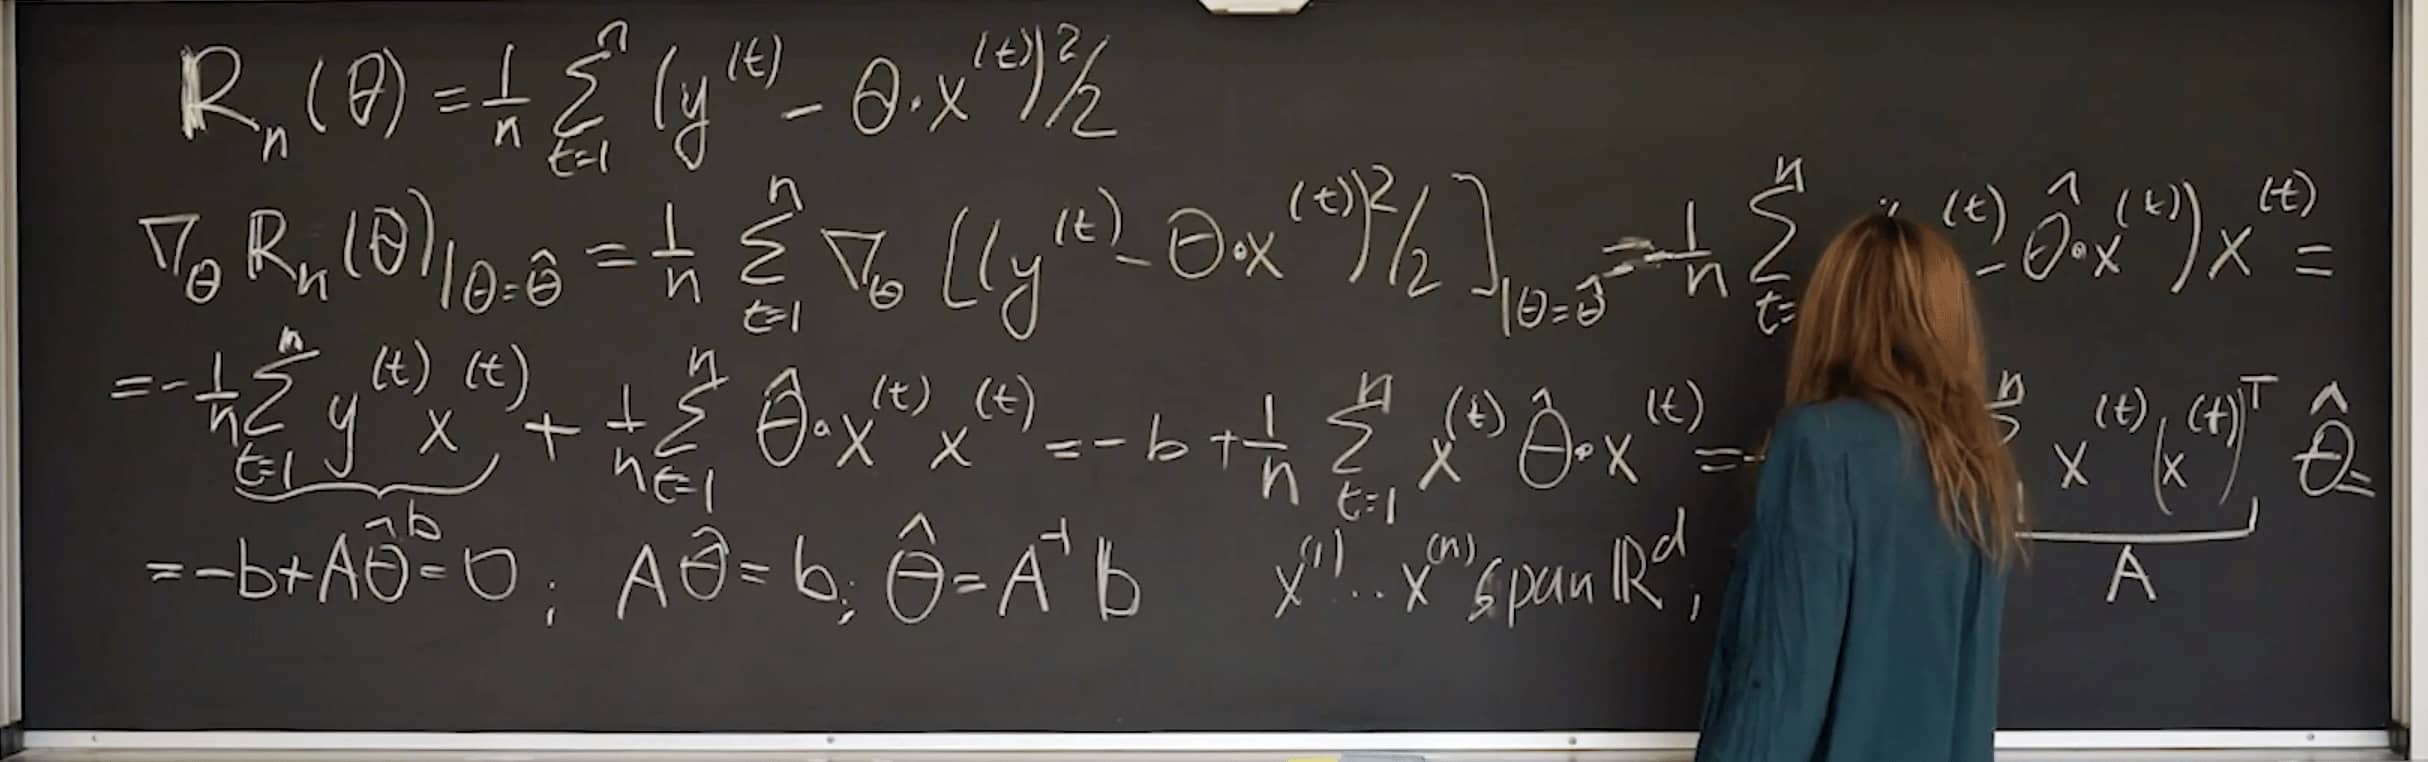 Rₙ(θ) = 1/n ∑ₜ₌₁ⁿ (y⁽ᵗ⁾ - θ·x⁽ᵗ⁾)²/2
∇_θ Rₙ(θ)|_θ=θ̂ = 1/n ∑ₜ₌₁ⁿ ∇_θ [(y⁽ᵗ⁾ - θ·x⁽ᵗ⁾)²/2]|_θ=θ̂ = - 1/n ∑ₜ₌ⁿ ⁽ᵗ⁾ - θ̂·x⁽ᵗ⁾) x⁽ᵗ⁾ =
= - 1/n ∑ₜ₌₁ⁿ y⁽ᵗ⁾ x⁽ᵗ⁾ + 1/n ∑ₜ₌₁ⁿ θ̂·x⁽ᵗ⁾ x⁽ᵗ⁾ = - b + 1/n ∑ₜ₌₁ⁿ x⁽ᵗ⁾ θ̂·x⁽ᵗ⁾ = - n x⁽ᵗ⁾ (x⁽ᵗ⁾)ᵀ θ̂ =
b A
= - b + Aθ̂ = 0; Aθ̂ = b; θ̂ = A⁻¹ b x⁽¹⁾ ... x⁽ⁿ⁾ span ℝᵈ;